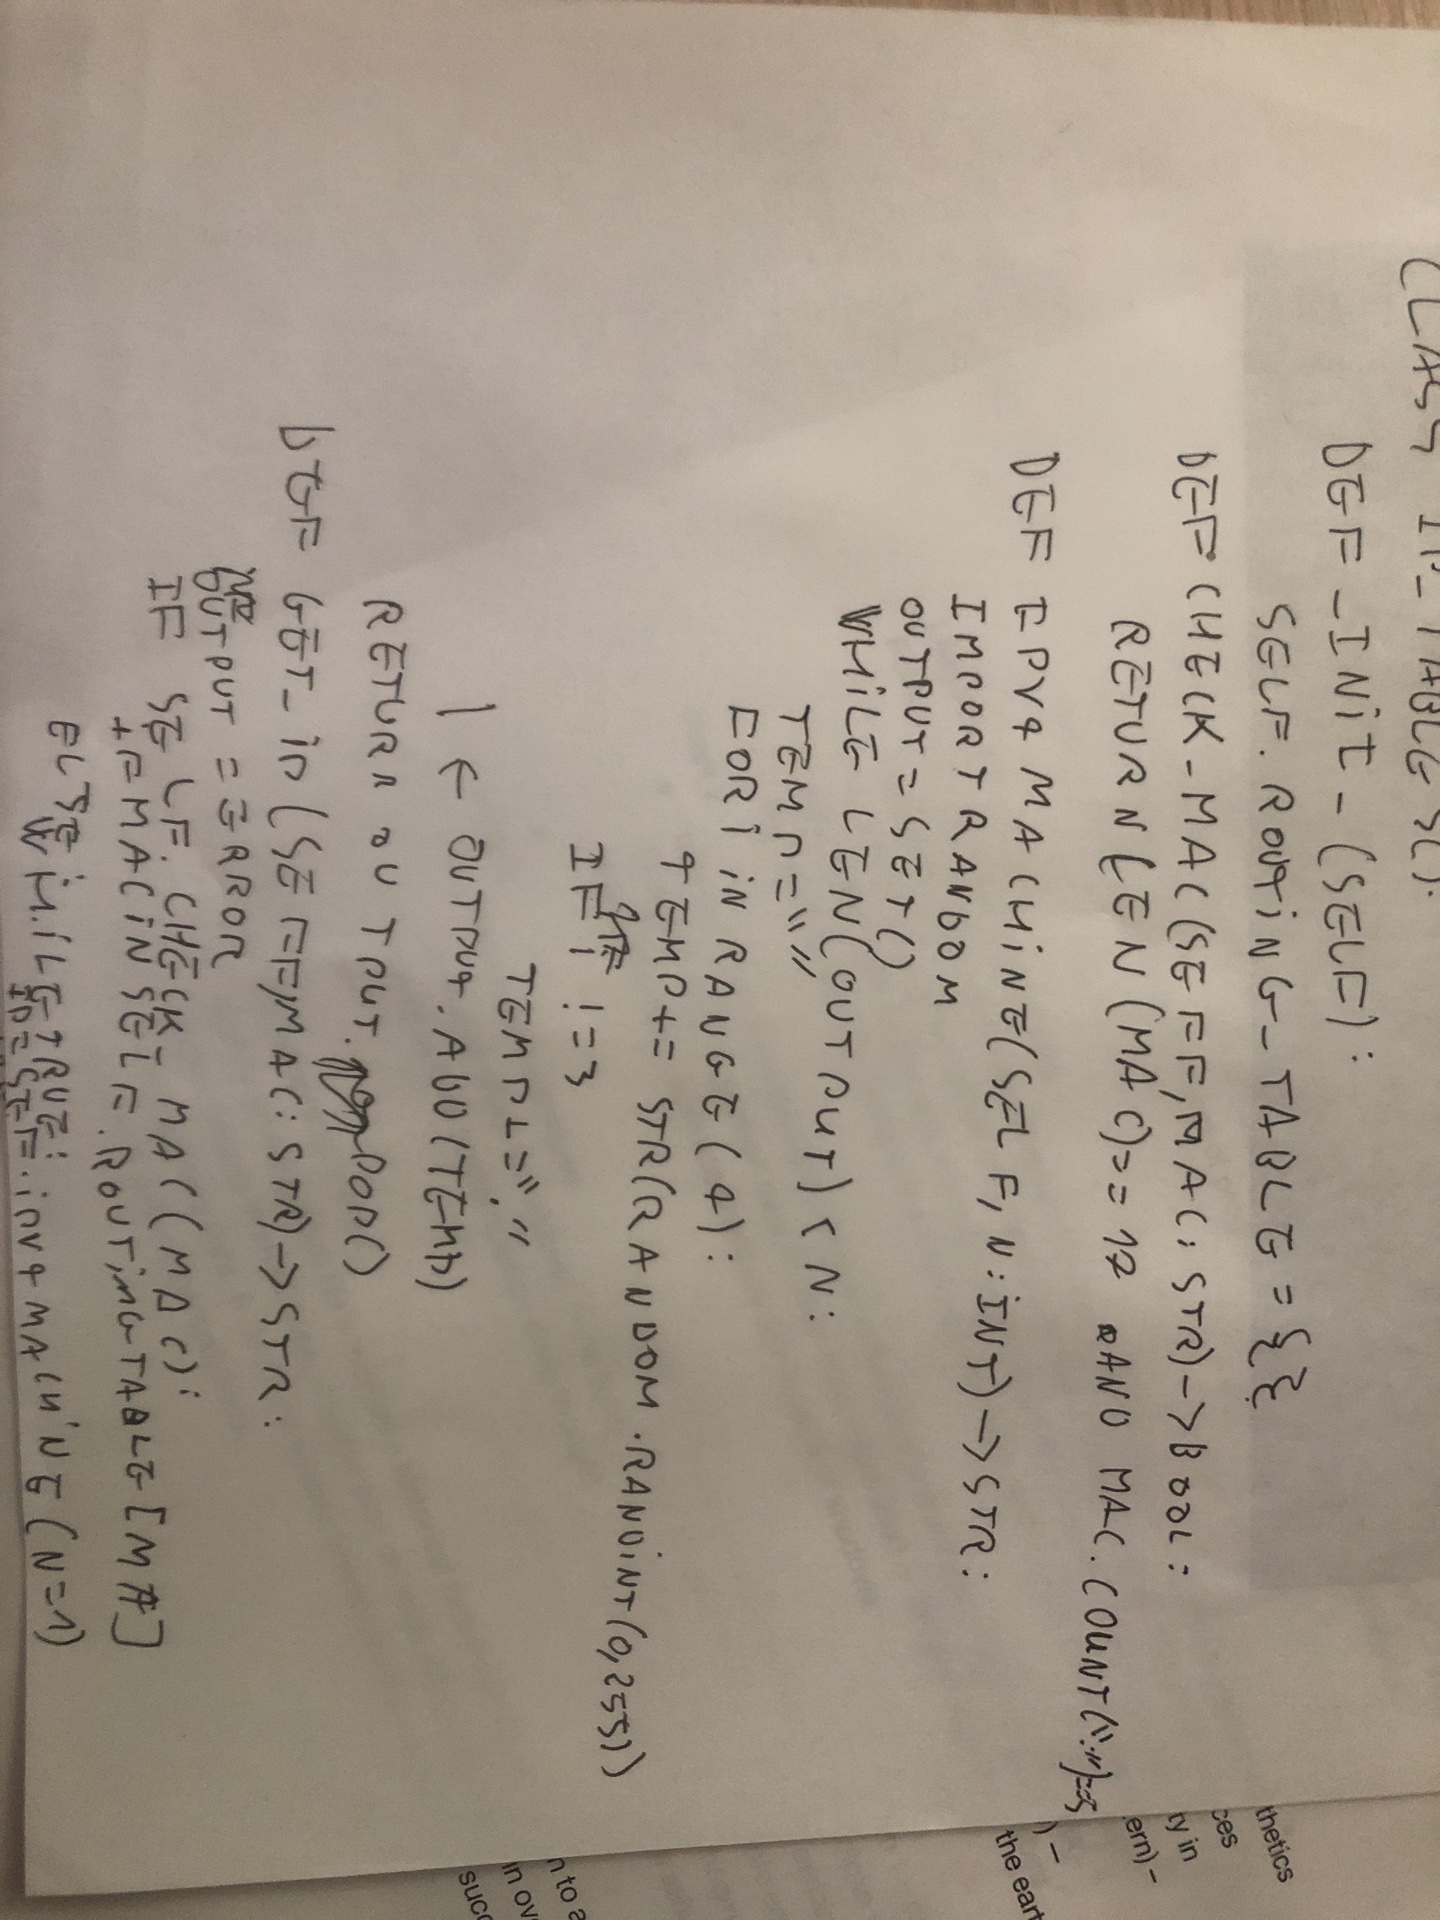 CLASS IP_TABLE():
DEF _INIT_(SELF):
SELF.ROUTING_TABLE = {}
DEF CHECK_MAC(SELF,MAC:STR)->BOOL:
RETURN LEN(MAC)==12 AND MAC.COUNT(":")==5
DEF IPV4MACHINE(SELF, N:INT)->STR:
IMPORT RANDOM
OUTPUT = SET()
WHILE LEN(OUTPUT) < N:
TEMP = ""
FOR i IN RANGE(4):
TEMP += STR(RANDOM.RANDINT(0,255))
IF i != 3
TEMP += "."
| ← OUTPUT.ADD(TEMP)
RETURN OUTPUT.POP()
DEF GET_IP(SELF,MAC:STR)->STR:
OUTPUT = ERROR
IF SELF.CHECK MAC(MAC):
IF MAC IN SELF.ROUTINGTABLE[MA]
ELSE: WHILE TRUE:
IP=SELF.IPV4MACHINE(N=1)
thetics
ces
ty in
ern) –
) –
the eart
n to a
in ov
succ